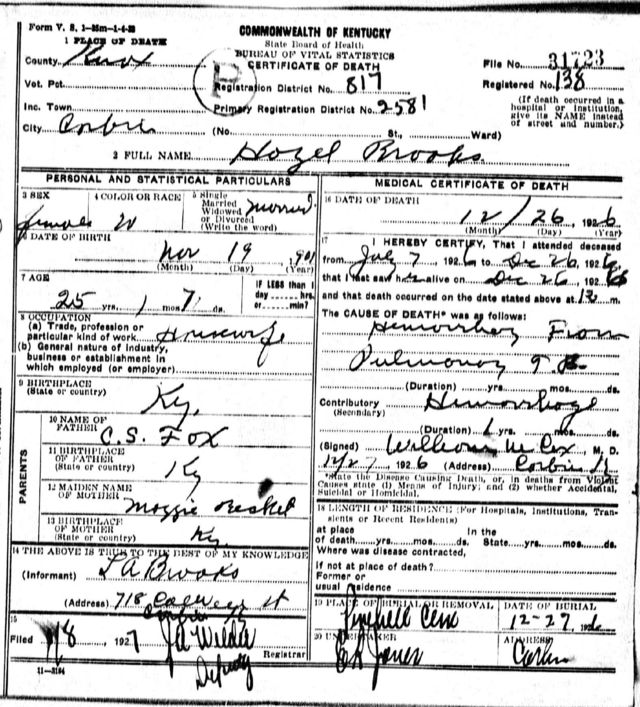 Form V. S. 1-35m-1-4-26
COMMONWEALTH OF KENTUCKY
State Board of Health
BUREAU OF VITAL STATISTICS
CERTIFICATE OF DEATH
1 PLACE OF DEATH
County Knox
File No. 31723
Vot. Pct.
Registration District No. 817
Registered No. 138
Inc. Town
Primary Registration District No. 2581
(If death occurred in a hospital or institution, give its NAME instead of street and number.)
City Corbin (No. St., Ward)
2 FULL NAME Hazel Brooks
PERSONAL AND STATISTICAL PARTICULARS
3 SEX female
4 COLOR OR RACE W
5 Single Married Widowed or Divorced (Write the word) Married
6 DATE OF BIRTH
Nov 19 1901
(Month) (Day) (Year)
7 AGE
25 yrs. 1 mos. 7 ds.
IF LESS than 1 day hrs. or min?
8 OCCUPATION
(a) Trade, profession or particular kind of work Housewife
(b) General nature of industry, business or establishment in which employed (or employer)
9 BIRTHPLACE
(State or country) Ky.
PARENTS
10 NAME OF FATHER C. S. Fox
11 BIRTHPLACE OF FATHER
(State or country) Ky
12 MAIDEN NAME OF MOTHER
13 BIRTHPLACE OF MOTHER
(State or country) Ky.
14 THE ABOVE IS TRUE TO THE BEST OF MY KNOWLEDGE
(Informant) Brooks
(Address) 718 st
Corbin Ky
15
Filed 1927
Registrar
Deputy
11-3184
MEDICAL CERTIFICATE OF DEATH
16 DATE OF DEATH
12/26 1926
(Month) (Day) (Year)
17 I HEREBY CERTIFY, That I attended deceased
from July 7 1926 to Dec 26, 1926
that I last saw her alive on Dec 26 1926
and that death occurred on the date stated above at 12 m.
The CAUSE OF DEATH* was as follows:
Hemorrhage From
Pulmonary T B
(Duration) yrs. mos. ds.
Contributory Hemorrhage
(Secondary)
(Duration) yrs. mos. ds.
(Signed) William M Cox, M. D.
12/27 1926 (Address) Corbin Ky
*State the Disease Causing Death, or, in deaths from Violent Causes state (1) Means of Injury; and (2) whether Accidental, Suicidal or Homicidal.
18 LENGTH OF RESIDENCE (For Hospitals, Institutions, Transients or Recent Residents)
at place In the
of death yrs. mos. ds. State yrs. mos. ds.
Where was disease contracted,
if not at place of death?
Former or
usual residence
19 PLACE OF BURIAL OR REMOVAL
DATE OF BURIAL
12-27 1926
20 UNDERTAKER
Jones
ADDRESS
Corbin